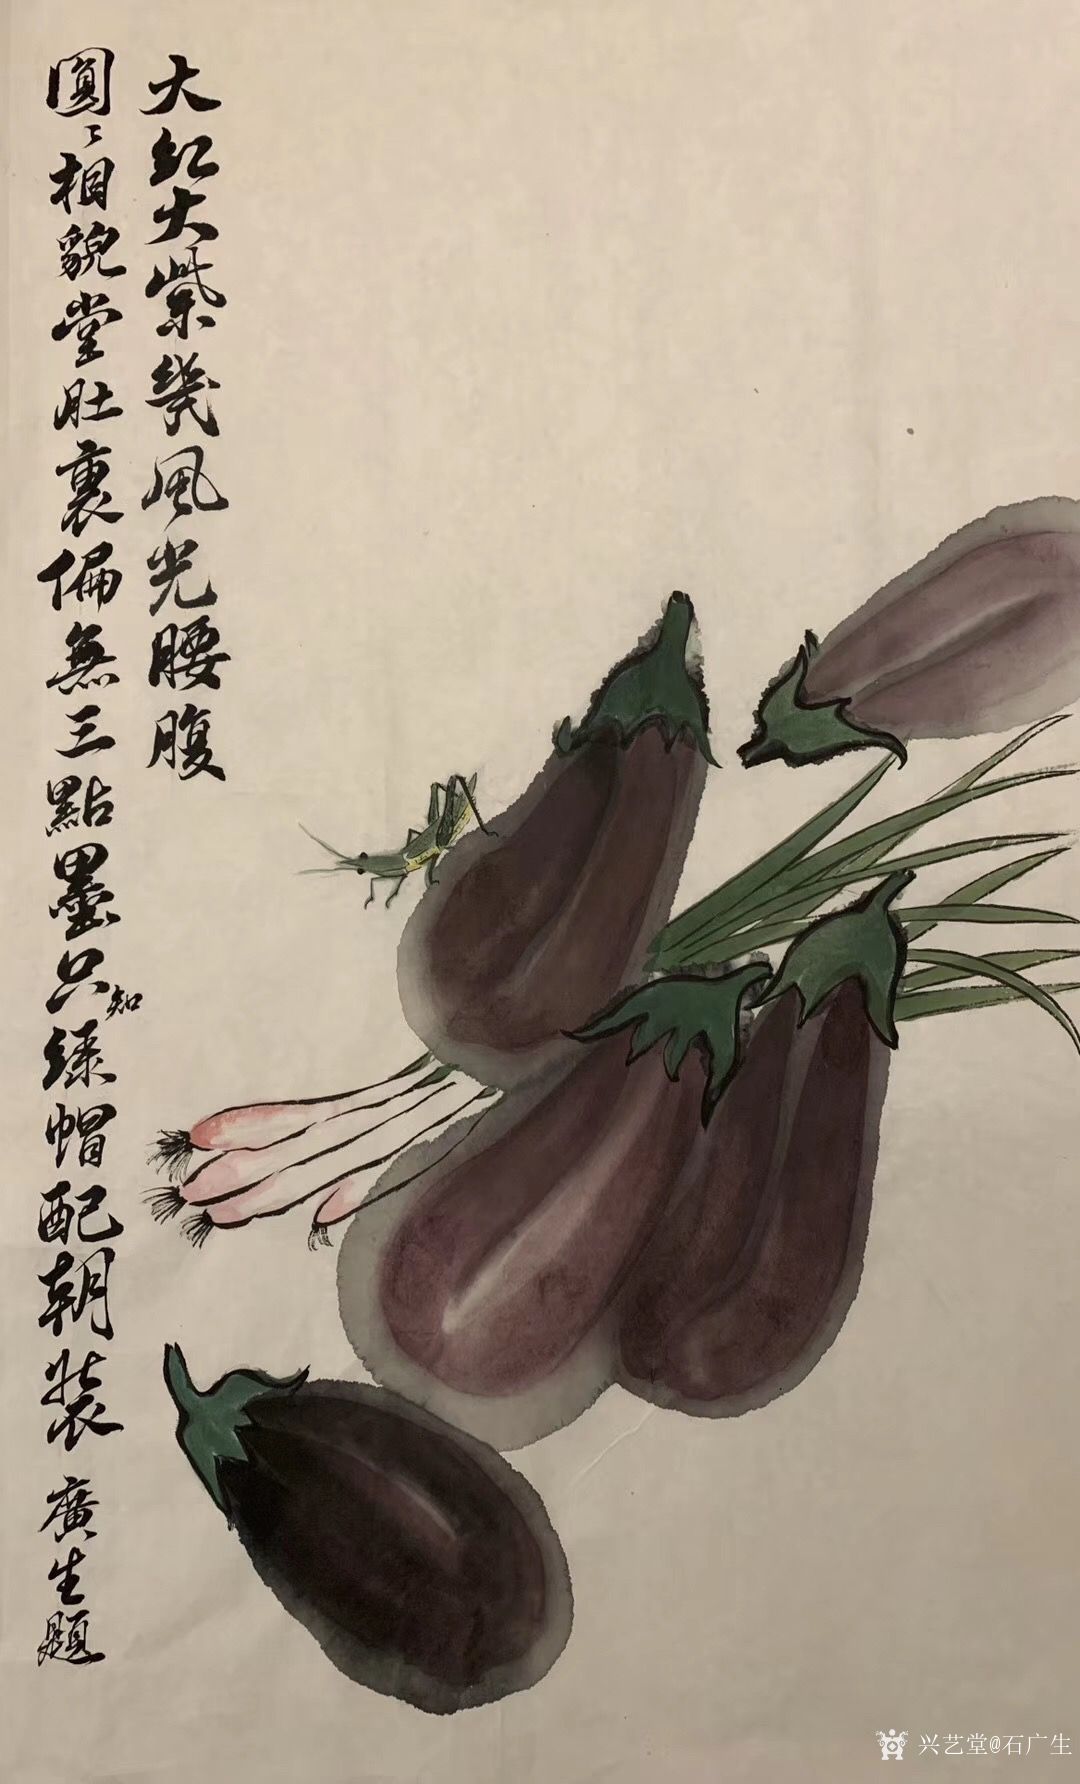 大紅大紫幾風光腰腹
圓〻相貌堂肚裏偏無三點墨只知緑帽配朝裝 廣生題
兴艺堂@石广生